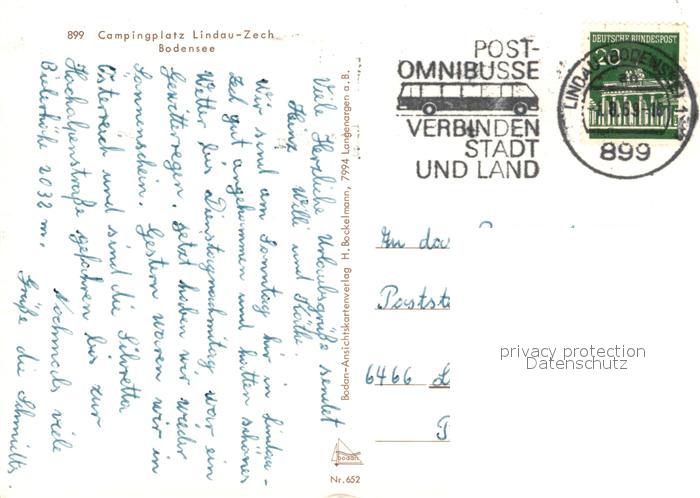 899 Campingplatz Lindau-Zech
Bodensee
Viele Herzliche Urlaubsgrüße sendet
Heinz Willi und Käthe.
Wir sind am Sonntag hir in Lindau-
Zech gut angekommen und hatten schönes
Wetter bis Dienstagnachmittag war ein
Gewitterregen. Jetzt haben wir wieder
Sonnenschein. Gestern waren wir in
Österreich und sind die Silvretta
Hochalpenstraße gefahren bis zur
Bielerhöhe 2032 m. Nochmals viele
Grüße die Schmidts.
Bodan-Ansichtskartenverlag H. Bockelmann, 7994 Langenargen a. B.
bodan
Nr. 652
POST-
OMNIBUSSE
VERBINDEN
STADT
UND LAND
DEUTSCHE BUNDESPOST
LINDAU (BODENSEE) 1
899
An da
Postst
6466
privacy protection
Datenschutz